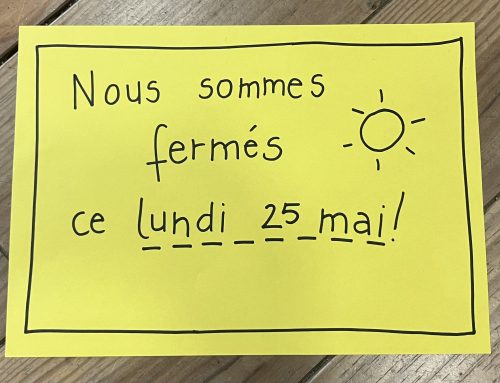 Nous sommes
fermés
ce lundi 25 mai!